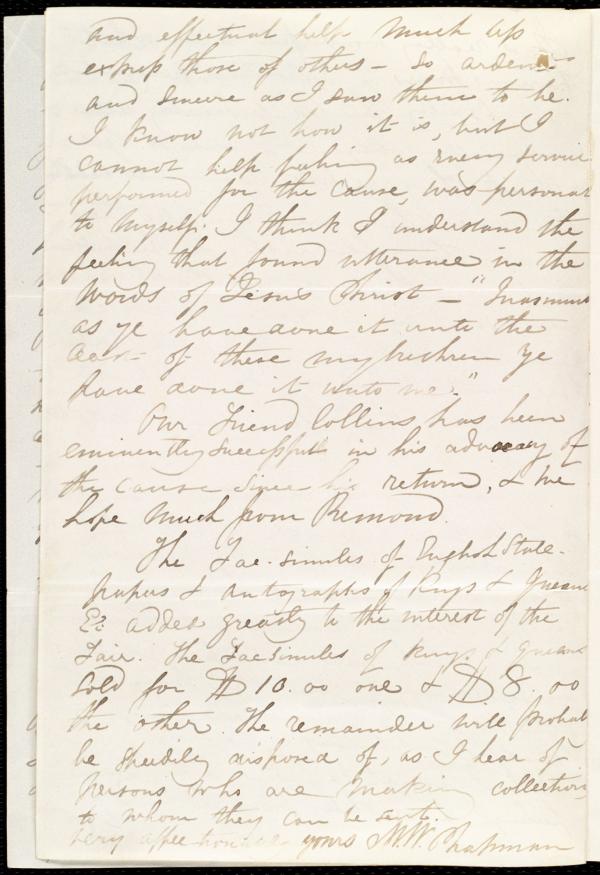 and effectual help much less
except those of others – so ardent
and sincere as I saw them to be.
I know not how it is, but I
cannot help feeling as every service
performed for the cause, was personal
to myself. I think I understand the
feeling that found utterance in the
words of Jesus Christ – "Inasmuch
as ye have done it unto the
least of these my brethren ye
have done it unto me."
Our friend Collins has been
eminently successful in his advocacy of
the cause since his return, & we
hope much from Remond.
The Fac-similes of English State-
papers & autographs of Kings & Queens
&c added greatly to the interest of the
Fair. The Facsimiles of kings & queens
sold for $10.00 one & $8.00
the other. The remainder will probab
be speedily disposed of, as I hear of
persons who are making collections
to whom they can be sent.
very affectionately yours M.W. Chapman